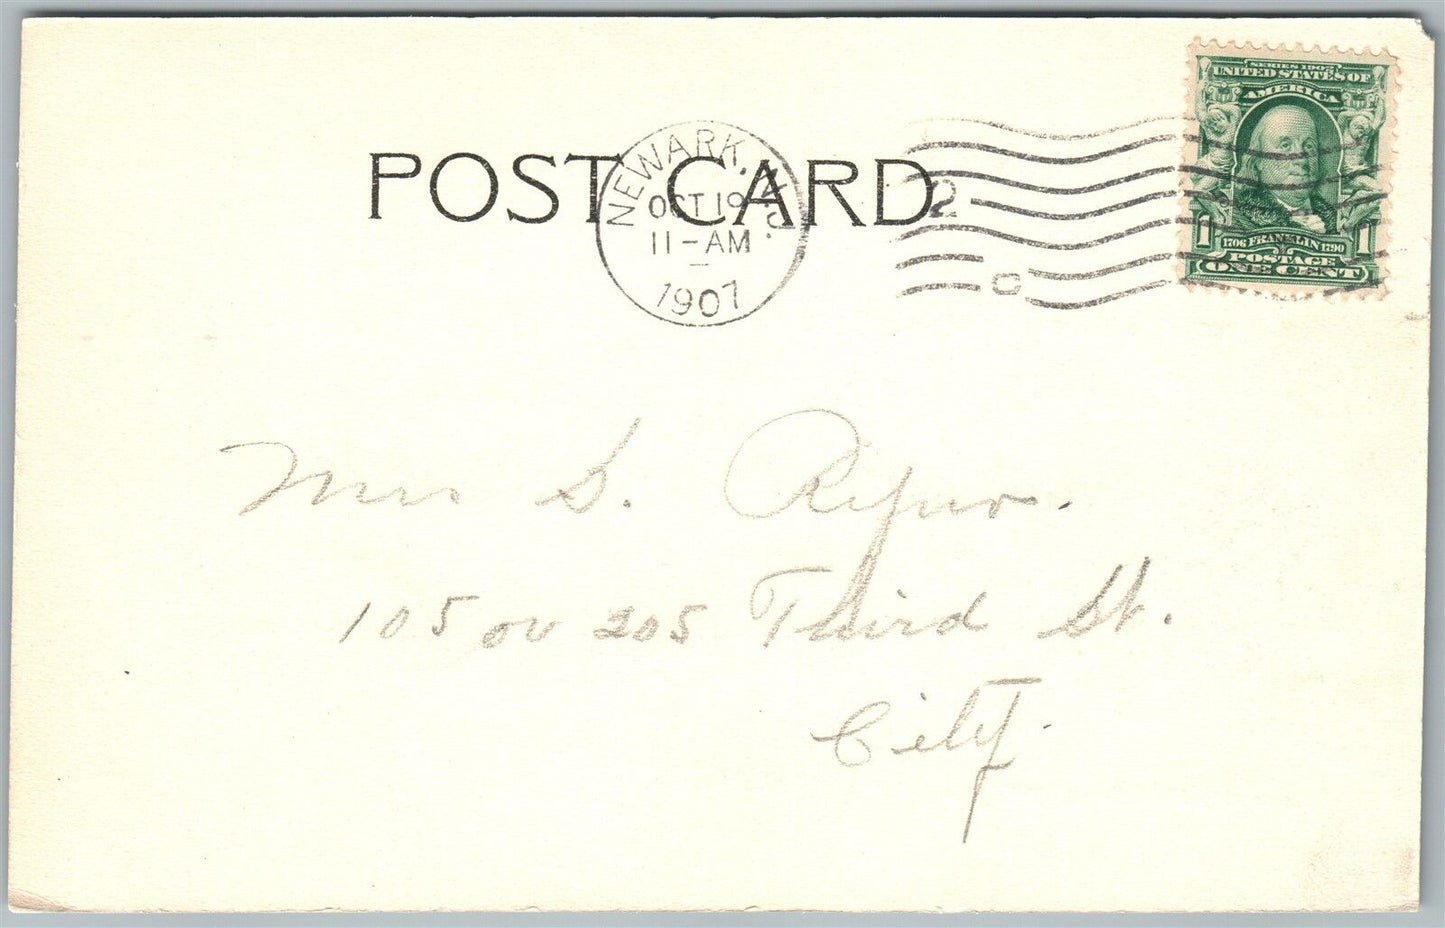 SERIES 1902
UNITED STATES OF
AMERICA
POST CARD
NEWARK, N.J.
OCT 19
11-AM
1907
2
C
1 1
1706 FRANKLIN 1790
POSTAGE
ONE CENT
Mrs S.
105 or 205 Third St.
City.